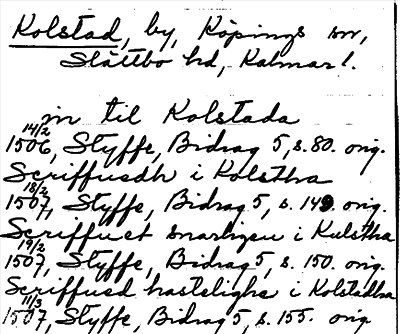 Kolstad, by, Köpings sn,
Slättbo hd, Kalmar l.
in til Kolstada
14/2 1506, Styffe, Bidrag 5, s. 80. orig.
Scriffuedh i Kolstha
18/2 1507, Styffe, Bidrag 5, s. 149. orig.
Scriffuet snarligen i Kulstha
19/2 1507, Styffe, Bidrag 5, s. 150. orig.
Scriffued hastelighe i Kolstadha
11/3 1507, Styffe, Bidrag 5, s. 155. orig.